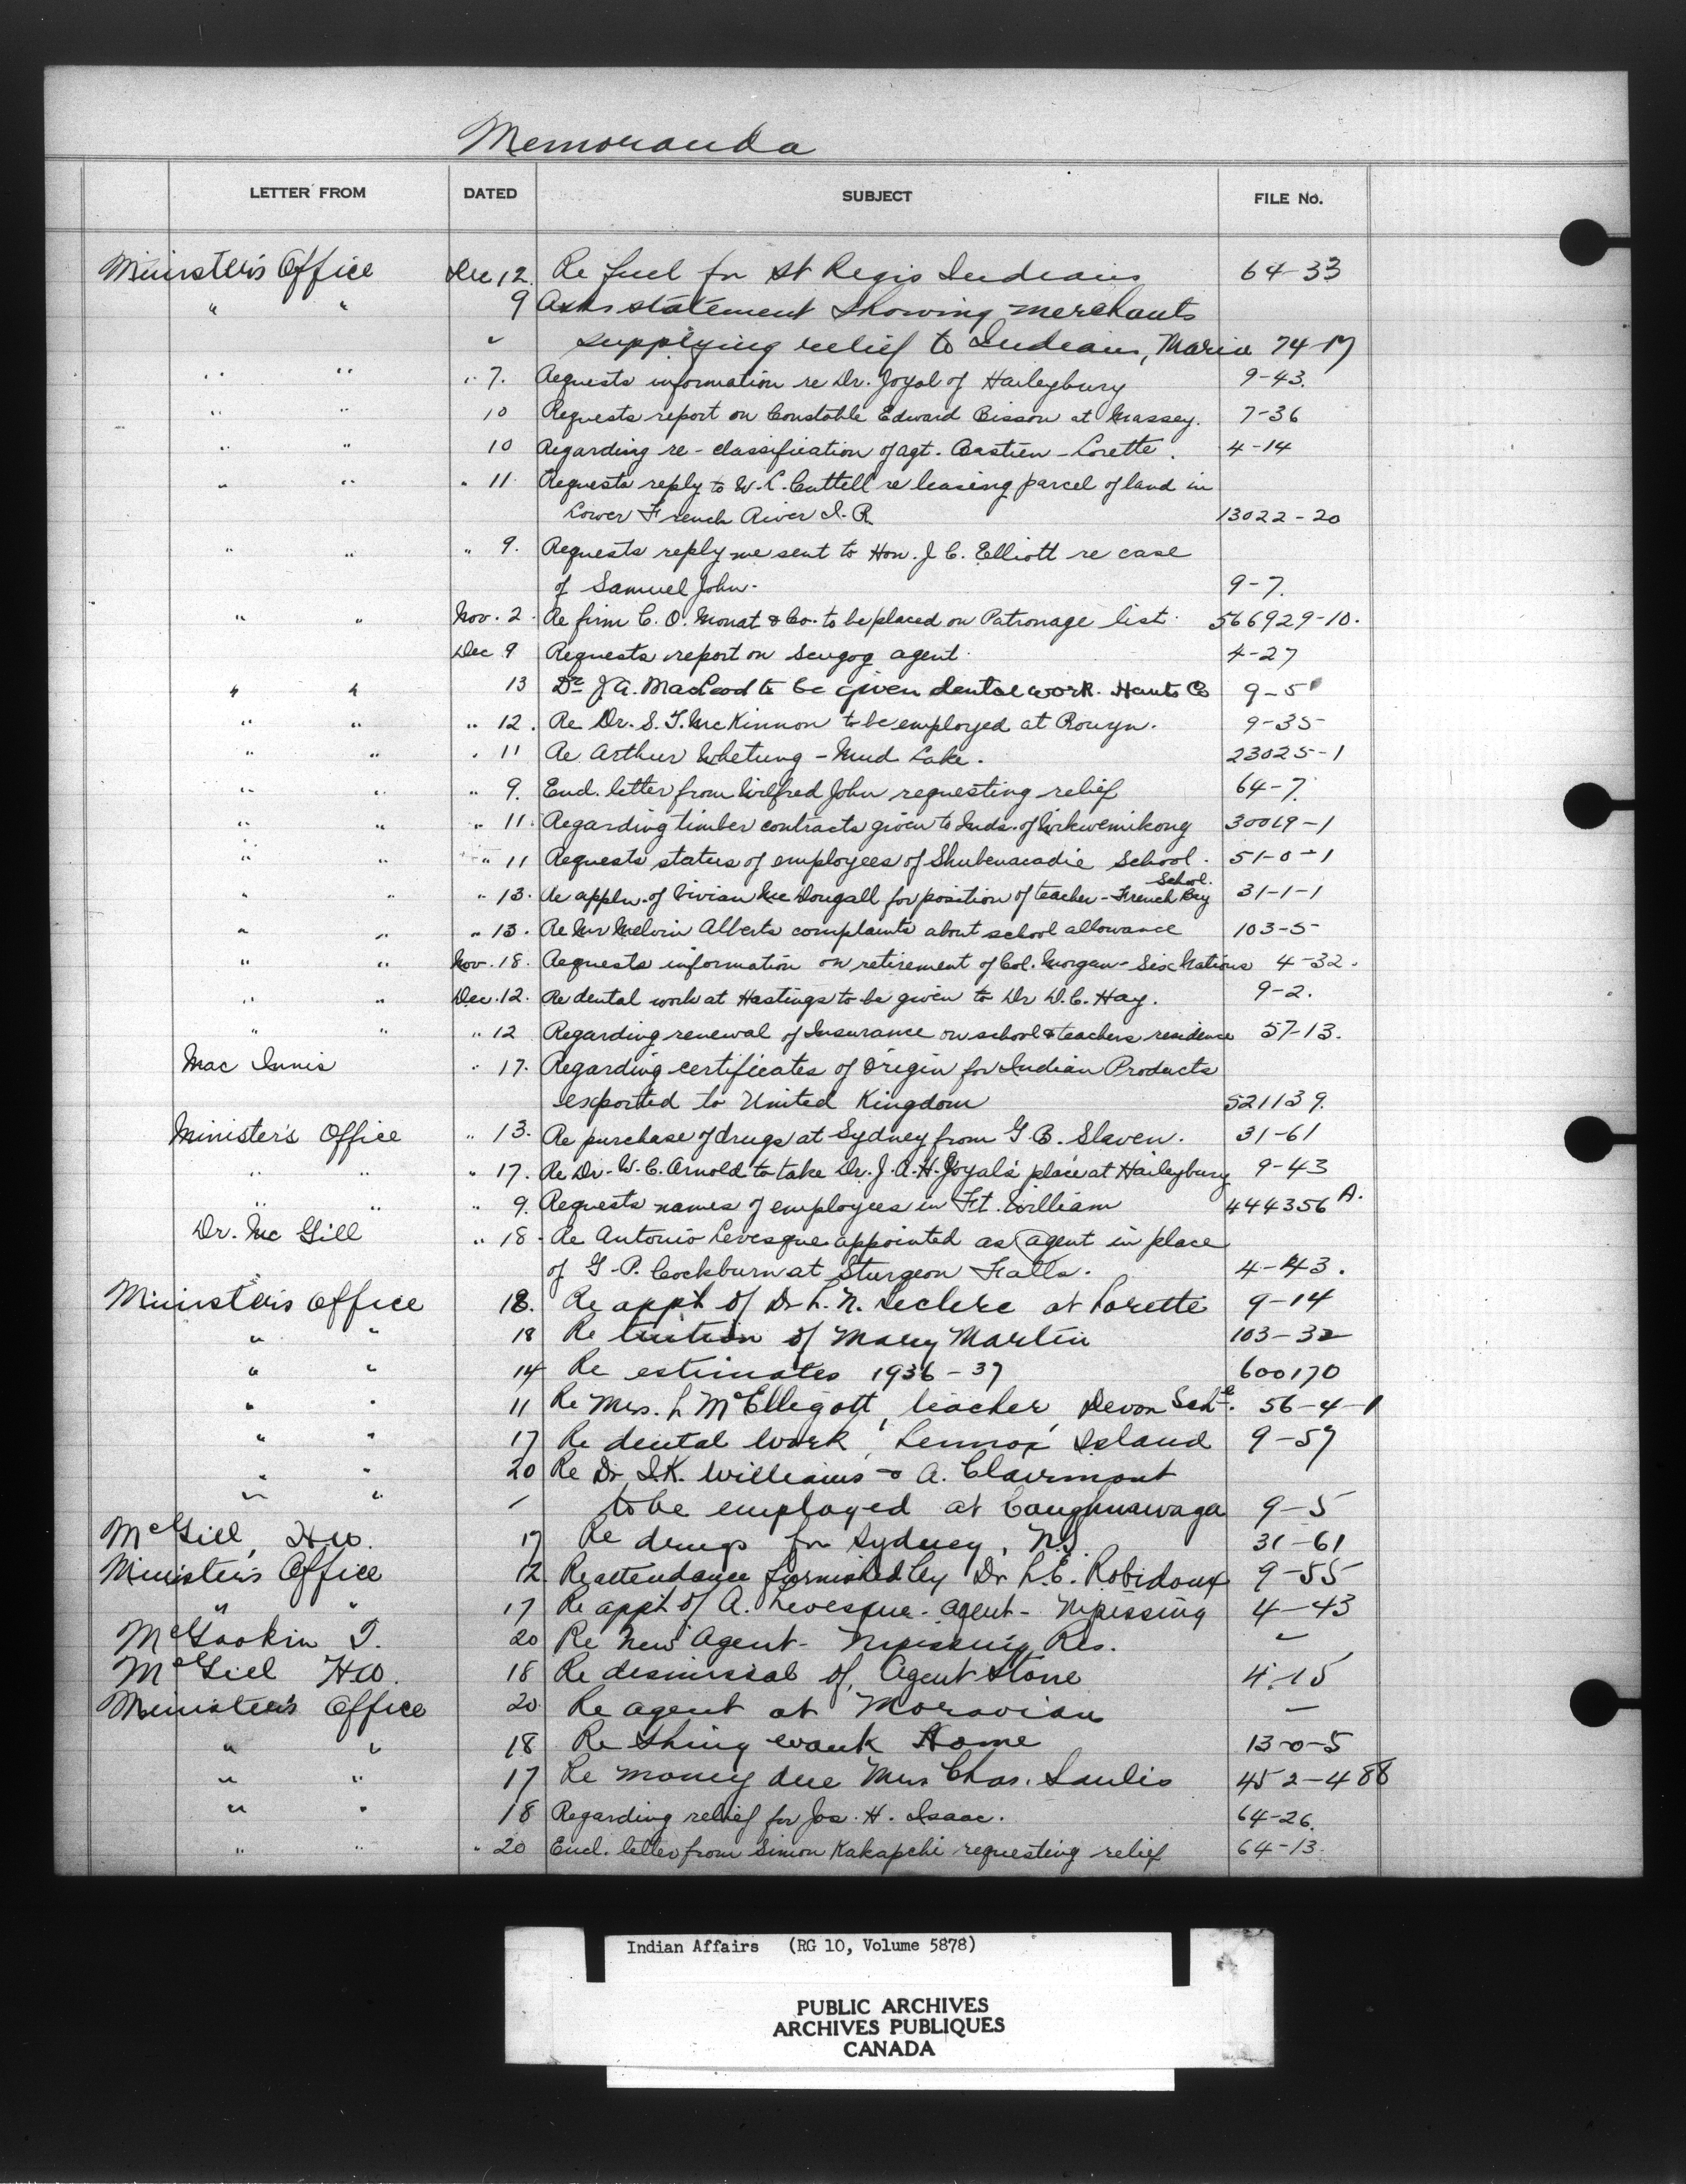 Memoranda
LETTER FROM DATED SUBJECT FILE No.
Minister's Office Dec 12. Re fuel for St Regis Indians 64-33
" " 9 Asks statement showing merchants
" supplying relief to Indians, Maria 74-17
" " " 7. Requests information re Dr. Joyal of Haileybury 9-43.
" " 10 Requests report on Constable Edward Bisson at Massey. 7-36
" " 10 Regarding re-classification of agt. Bastien - Lorette. 4-14
" " " 11 Requests reply to W. L. Cuttell re leasing parcel of land in
Lower French River I. R. 13022-20
" " " 9. Requests reply we sent to Hon. J. C. Elliott re case
of Samuel John. 9-7.
" " Nov. 2. Re firm C. O. Monat & Co. to be placed on Patronage list. 566929-10.
Dec 9 Requests report on Scugog agent. 4-27
" " 13 Dr J A. MacLeod to be given dental work. Hants Co 9-5
" " " 12. Re Dr. S. T. McKinnon to be employed at Rouyn. 9-35
" " " 11 Re Arthur Whetung - Mud Lake. 23025-1
" " " 9. Encl. letter from Wilfred John requesting relief 64-7.
" " " 11. Regarding timber contracts given to Inds. of Wikwemikong 30019-1
" " " 11 Requests status of employees of Shubenacadie School. 51-0-1
" " " 13. Re appln. of Vivian McDougall for position of teacher - French Bay School. 31-1-1
" " " 13. Re Mr Melvin Alberts complaints about school allowance 103-5
" " Nov. 18. Requests information on retirement of Col. Morgan - Six Nations 4-32.
" " Dec. 12. Re dental work at Hastings to be given to Dr D. C. Hay. 9-2.
" " " 12 Regarding renewal of Insurance on school & teachers residence 57-13.
Mac Innis " 17. Regarding certificates of Origin for Indian Products
exported to United Kingdom 521139.
Minister's Office " 13. Re purchase of drugs at Sydney from G. B. Slaven. 31-61
" " " 17. Re Dr. W. C. Arnold to take Dr. J. A. H. Joyal's place at Haileybury 9-43
" " " 9. Requests names of employees in Ft. William 444356 A.
Dr. Mc Gill " 18. Re Antonio Levesque appointed as agent in place
of G. P. Cockburn at Sturgeon Falls. 4-43.
Minister's Office 18. Re appt of Dr L. N. Leclerc at Lorette 9-14
" " 18 Re tuition of Mary Martin 103-32
" " 14 Re estimates 1936-37 600170
" " 11 Re Mrs. L McElligott, teacher, Devon Schl. 56-4-1
" " 17 Re dental work, Lennox Island 9-57
" " 20 Re Dr. I. K. Williams & A. Clairmont
" " " to be employed at Caughnawaga 9-5
McGill, H W. 17 Re drugs for Sydney, N.S. 31-61
Minister's Office 12. Re attendance furnished by Dr L. E. Robidoux 9-55
" " 17 Re appt of A. Levesque - Agent - Nipissing 4-43
McGookin T. 20 Re New Agent - Nipissing Res. "
McGill HW. 18 Re dismissal of Agent Stone 4-15
Minister's Office 20 Re agent at Moravian —
" " 18 Re Shingwauk Home 13-0-5
" " 17 Re money due Mrs Chas. Saulis 452-488
" " 18 Regarding relief for Jos. H. Isaac. 64-26.
" " " 20 Encl. letter from Simon Kakapchi requesting relief 64-13.
Indian Affairs (RG 10, Volume 5878)
PUBLIC ARCHIVES
ARCHIVES PUBLIQUES
CANADA